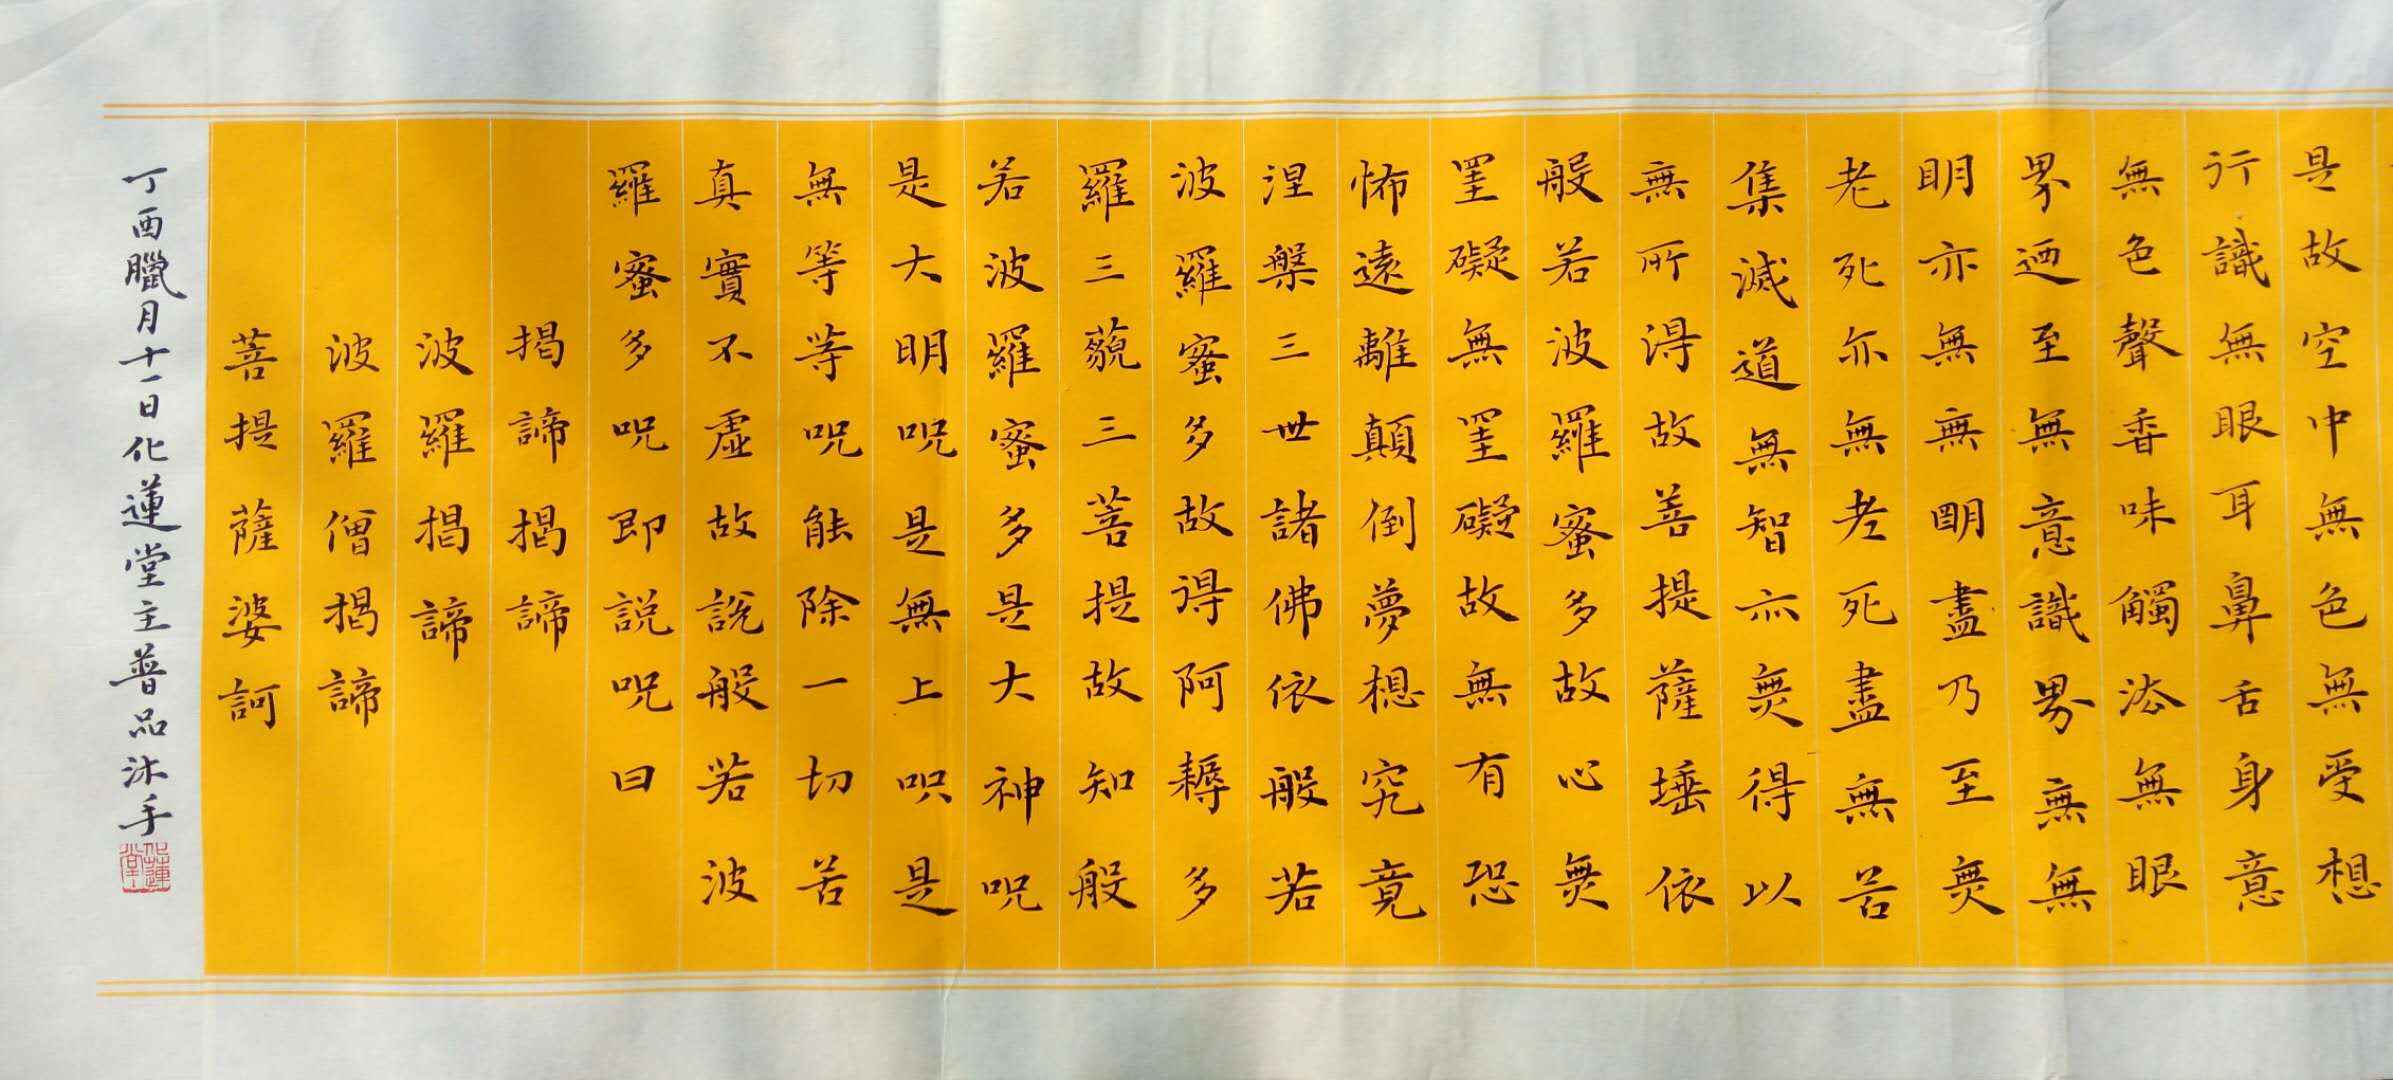 是故空中無色無受想
行識無眼耳鼻舌身意
無色聲香味觸法無眼
界迺至無意識界無無
明亦無無明盡乃至無
老死亦無老死盡無苦
集滅道無智亦無得以
無所得故菩提薩埵依
般若波羅蜜多故心無
罣礙無罣礙故無有恐
怖遠離顛倒夢想究竟
涅槃三世諸佛依般若
波羅蜜多故得阿耨多
羅三藐三菩提故知般
若波羅蜜多是大神呪
是大明呪是無上呪是
無等等呪能除一切苦
真實不虛故說般若波
羅蜜多呪即説呪曰
揭諦揭諦
波羅揭諦
波羅僧揭諦
菩提薩婆訶
丁酉臘月十一日化蓮堂主普品沐手
化蓮堂